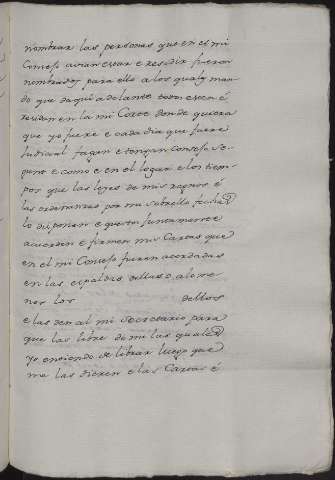 nombrar las personas que en el mi
Consejo avian estar e residir fueron
nombrados para ello a los quales man
do que daqui adelante todos esten é
residan en la mi Corte donde quiera
que yo fuere e cada dia que fuere
Judicial fagan e tengan Consejo se-
gunt e como e en el logar e los tiem-
pos que las leyes de mis regnos é
las ordenanzas por mi sobrello fechas
lo disponen e questen juntamente
acuerden e firmen mis Cartas que
en el mi Consejo fueren acordadas
en las espaldas dellas o alome
nos los dellos
e las den al mi Secretario para
que las libre de mi las quales
yo entiendo de librar luego que
me las dieren e las Cartas é